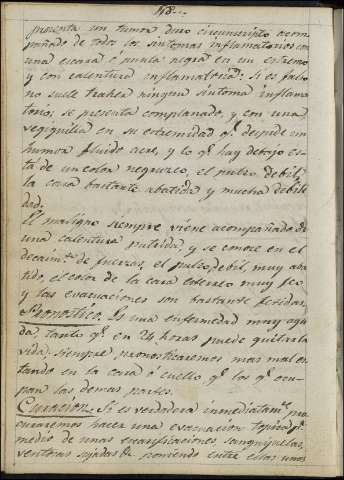 presenta un tumor duro circunscripto acom
pañado de todos los sintomas inflamatorios con
una escara ó punta negra en un extremo
y con calentura inflamatoria: Si es falso
no suele traher ningun sintoma inflama
torio; se presenta complanado, y con una
vegiguilla en su extremidad qe. despide un
humor fluido acre, y lo qe. hay debajo es-
tá de un color negruzco, el pulso debil,
la cara bastante abatida y mucha debili
dad.
El maligno siempre viene acompañado de
una calentura putrida, y se conoce en el
decaimto. de fuerzas, el pulso debil, muy aba
tido, el color de la cara muy feo
y las evacuaciones son bastante fetidas.
Pronostico. Es una enfermedad muy agu
da, tanto qe. en 24 horas puede quitar la
vida; siempre pronosticaremos mas mal es-
tando en la cara ó cuello qe. los qe. ocu-
pan las demas partes.
Curacion. Si es verdadera inmediatamte. pro
curaremos hacer una evacuacion topica pr.
medio de unas escarificaciones, sanguijuelas,
ventosas sajadas & poniendo entre estas unos